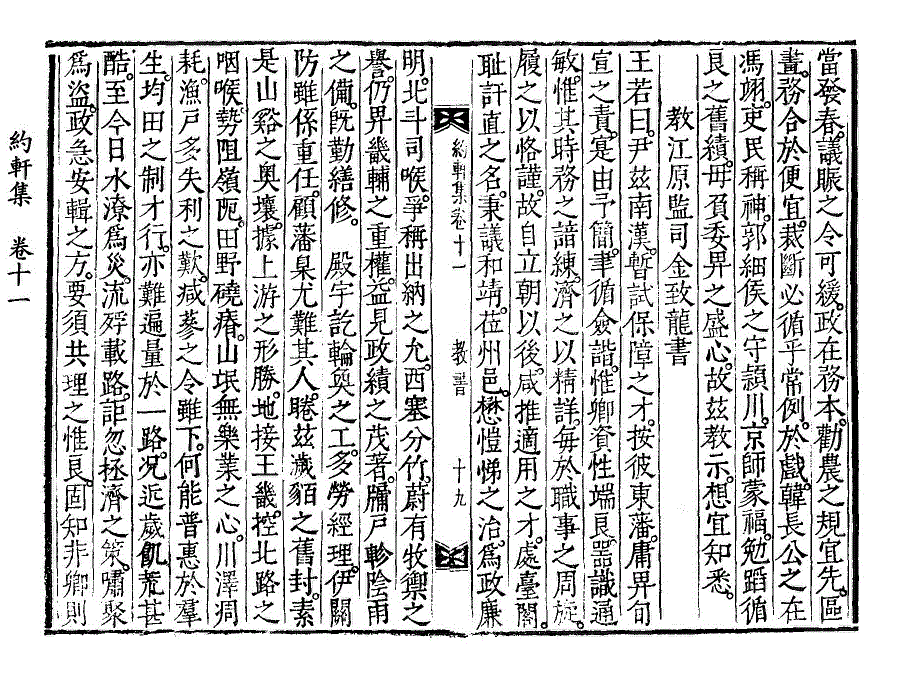 當發春。議賑之令可緩。政在務本。勸農之規宜先。區
畫。務合於便宜。裁斷必循乎常例。於戲。韓長公之在
馮翊。吏民稱神。郭細侯之守潁川。京師蒙福。勉蹈循
良之舊績。毋負委畀之盛心。故玆敎示。想宜知悉。
敎江原監司金致龍書
王若曰。尹玆南漢。暫試保障之才。按彼東藩。庸畀旬
宣之責。寔由予簡。聿循僉諧。惟卿資性端良。器識通
敏。惟其時務之諳練。濟之以精詳。每於職事之周旋。
履之以恪謹。故自立朝以後。咸推適用之才。處臺閣。
耻訐直之名。秉議和靖。莅州邑。懋愷悌之治。爲政廉
約軒集卷十一
敎書
十九
明。北斗司喉。爭稱出納之允。西塞分竹。蔚有牧禦之
譽。仍畀畿輔之重權。益見政績之茂著。牖戶軫陰雨
之備。旣勤繕修。 殿宇訖輪奐之工。多勞經理。伊關
防雖係重任。顧藩臬尤難其人。睠玆濊貊之舊封。素
是山谿之奧壤。據上游之形勝。地接王畿。控北路之
咽喉。勢阻嶺阨。田野磽瘠。山氓無樂業之心。川澤凋
耗。漁戶多失利之歎。减蔘之令雖下。何能普惠於羣
生。均田之制才行。亦難遍量於一路。况近歲飢荒甚
酷。至今日水潦爲災。流殍載路。詎忽拯濟之策。嘯聚
爲盜。政急安輯之方。要須共理之惟良。固知非卿則
約軒集 卷十一